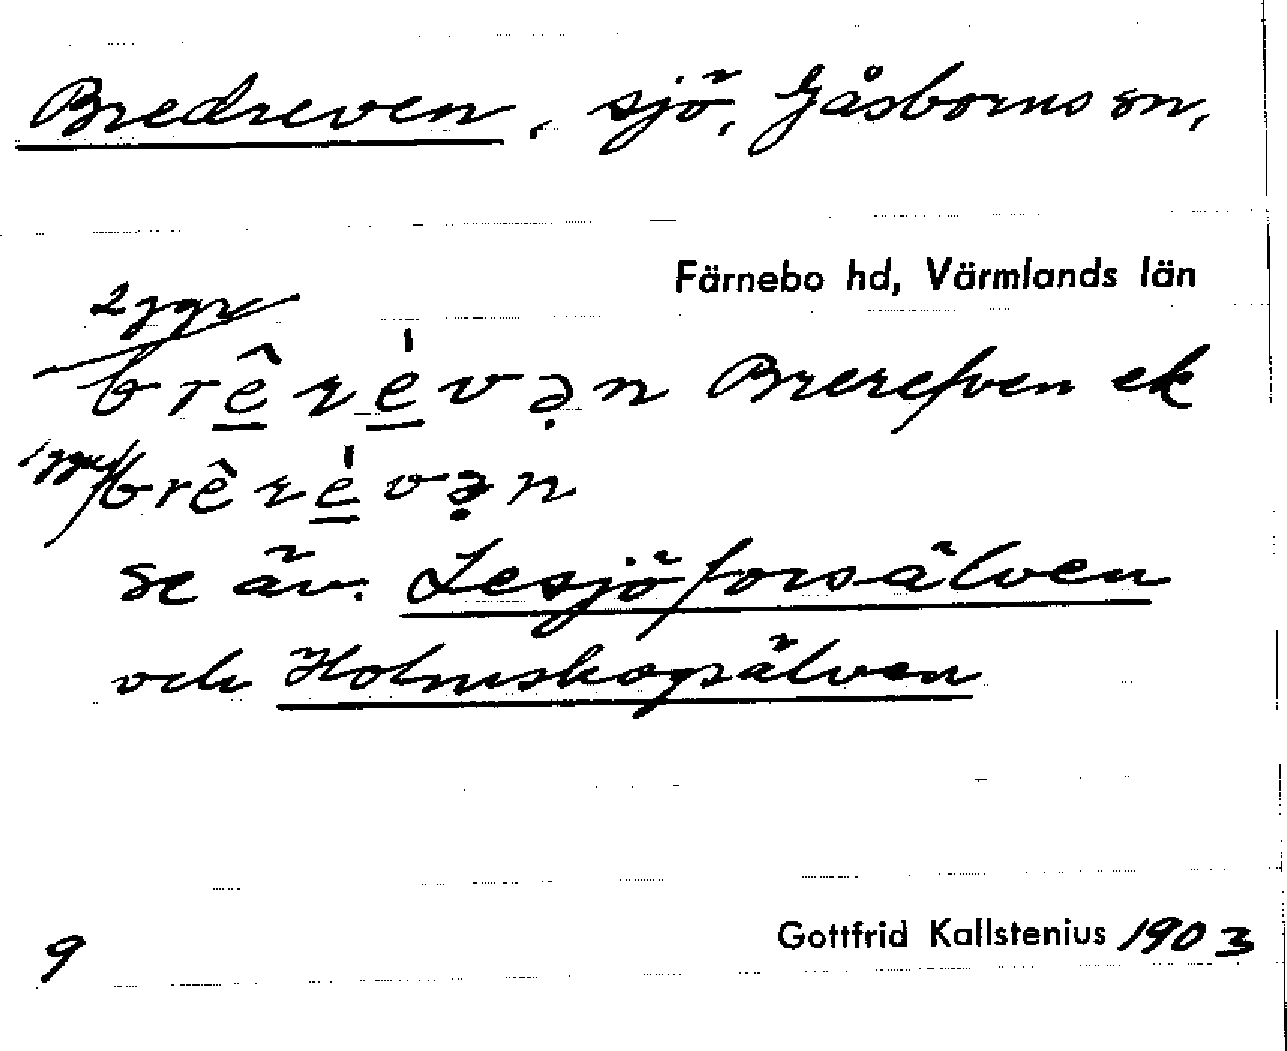 Bredreven, sjö, Gåsborns sn,
Färnebo hd, Värmlands län
2 ggr
brê̱re̱̍və̣n Brerefven ek
1 ggr
brêre̱̍və̣n
se äv. Lesjöforsälven
och Holmskogsälven
9
Gottfrid Kallstenius 1903